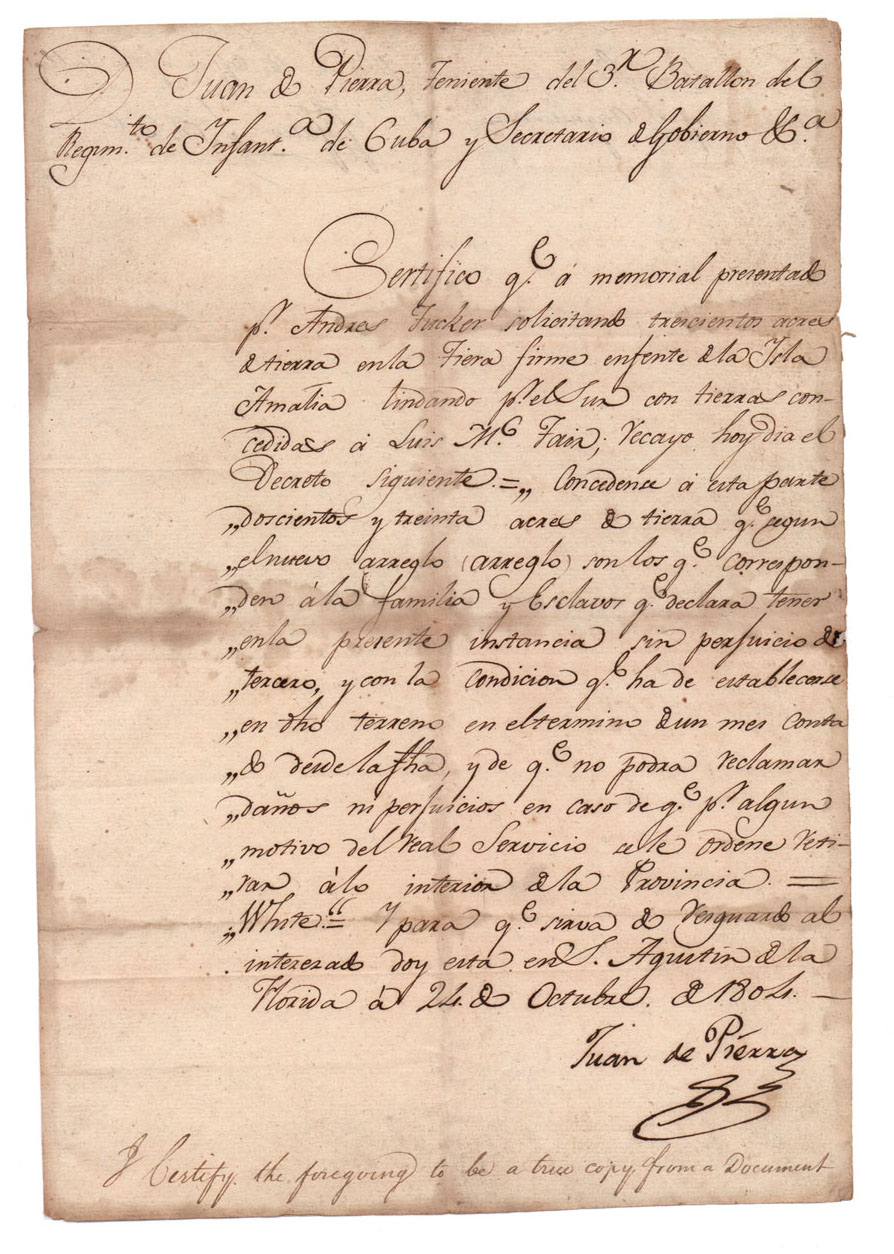 D Juan de Pierra, Teniente del 3.r Batallon del
Regim.to de Infant.a de Cuba y Secretario de Gobierno &c.a
Certifico q.e á memorial presentado
p.r Andres Tucker solicitando trescientos acres
de tierra en la Tiera firme enfente de la Isla
Amalia lindando p.r el Sur con tierras con-
cedidas á Luis M.c Fain; recayo hoy dia el
Decreto siguiente. = „ Concedense á esta parte
„doscientos y treinta acres de tierra q.e segun
„el nuevo arreglo (arreglo) son los q.e correspon-
„den á la familia y Esclavos q.e declara tener
„en la presente instancia sin perjuicio de
„tercero, y con la condicion q.e ha de establecerse
„en dho terreno en el termino de un mes conta
„do desde la fha, y de q.e no podra reclamar
„daños ni perjuicios en caso de q.e p.r algun
„motivo del real Servicio se le ordene reti-
„rar á lo interior de la Provincia. =
„White.“= Y para q.e sirva de resguardo al
interesado doy esta en S. Agustin de la
Florida á 24. de Octubre. de 1804. —
Juan de Pierra
I Certify the foregoing to be a true copy from a Document